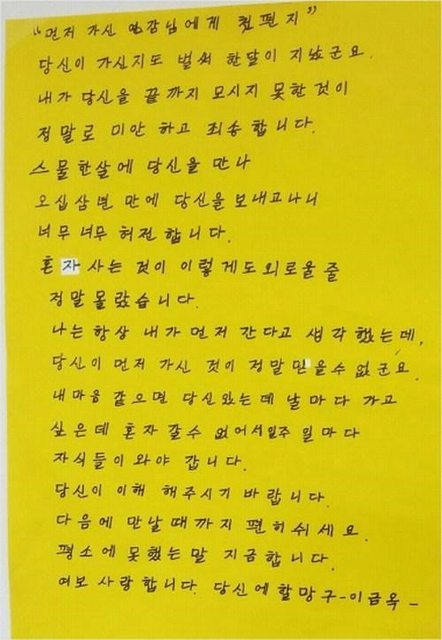 “먼저 가신 영감님에게 첫편지”
당신이 가신지도 벌써 한달이 지났군요.
내가 당신을 끝까지 모시지 못한 것이
정말로 미안 하고 죄송 합니다.
스물한살에 당신을 만나
오십삼년 만에 당신을 보내고나니
너무 너무 허전 합니다.
혼자 사는 것이 이렇게도 외로울 줄
정말 몰랐습니다.
나는 항상 내가 먼저 간다고 생각 했는데,
당신이 먼저 가신 것이 정말 믿을수 없군요.
내마음 같으면 당신있는데 날마다 가고
싶은데 혼자 갈수 없어서 일주 일마다
자식들이 와야 갑니다.
당신이 이해 해주시기 바랍니다.
다음에 만날때까지 편히쉬세요.
평소에 못했는말 지금합니다.
여보 사랑합니다. 당신에 할망구-이금옥-